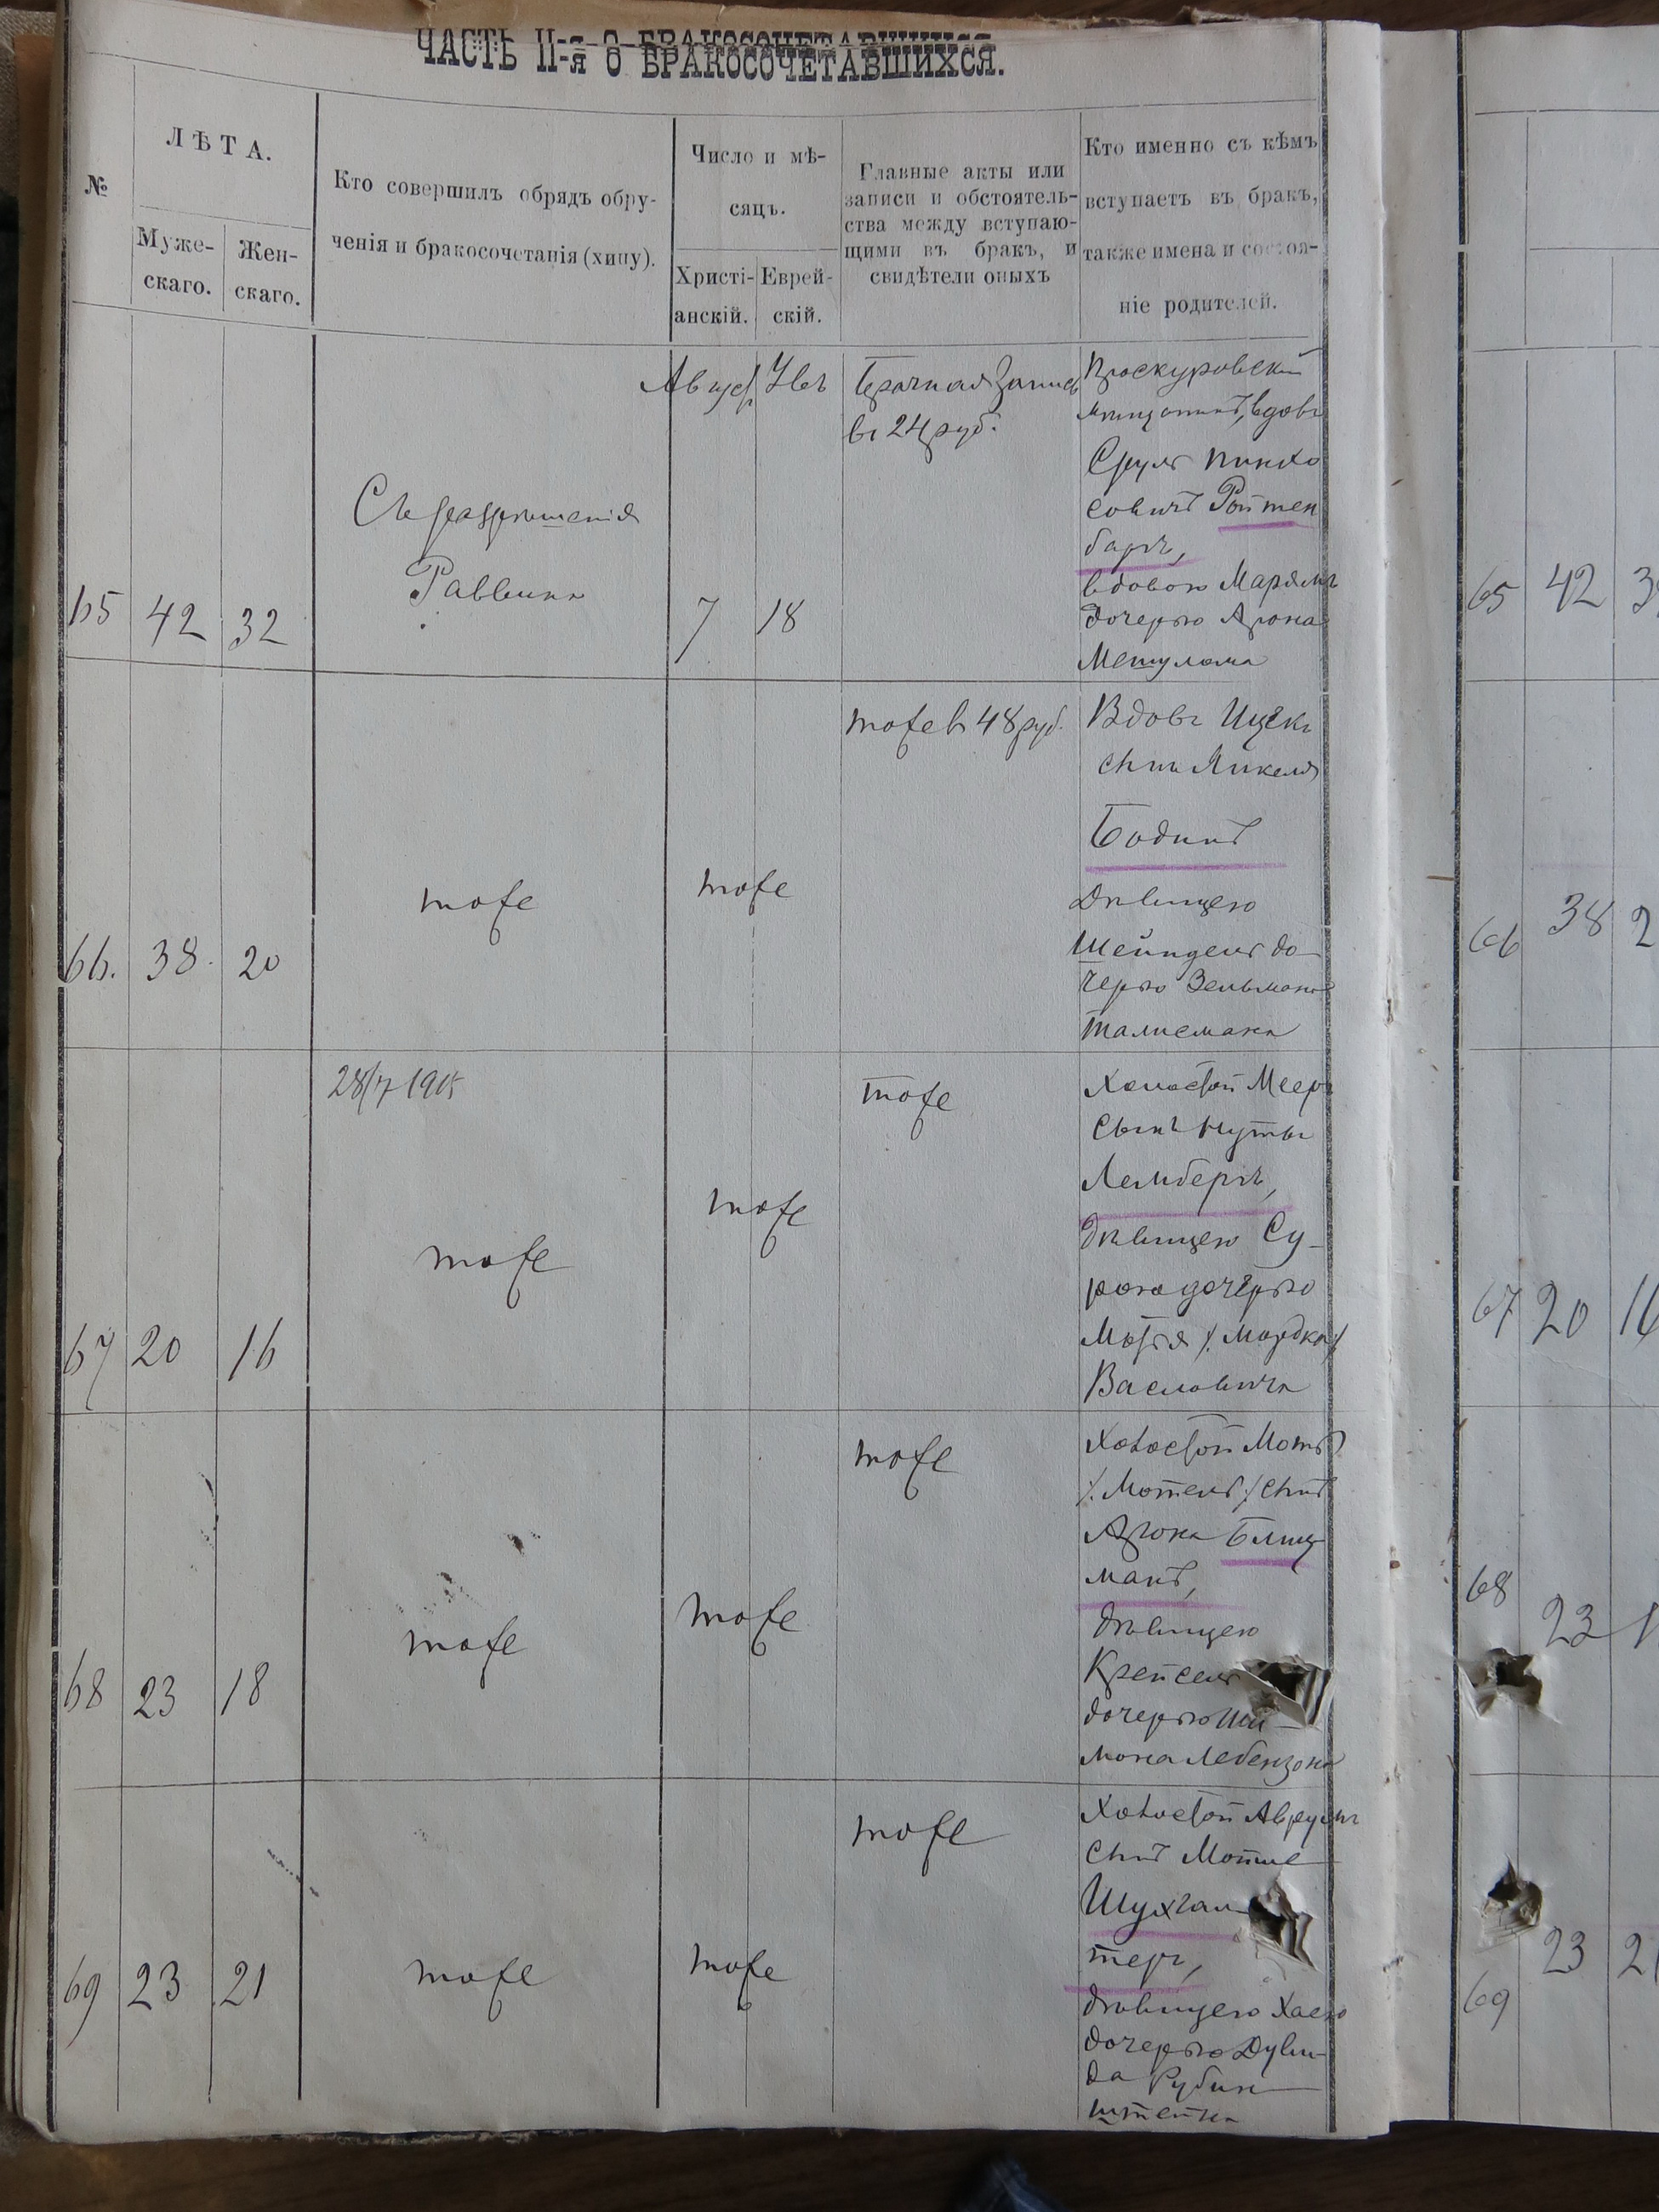 ЧАСТЬ II-я О БРАКОСОЧЕТАВШИХСЯ.
№
ЛѢТА.
Муже-
скаго.
Жен-
скаго.
Кто совершилъ обрядъ обру-
ченія и бракосочетанія (хипу).
Число и мѣ-
сяцъ.
Христі-
анскій.
Еврей-
скій.
Главные акты или
записи и обстоятель-
ства между вступаю-
щими въ бракъ, и
свидѣтели оныхъ
Кто именно съ кѣмъ
вступаетъ въ бракъ,
также имена и состоя-
ніе родителей.
65
42
32
Съ разрѣшенія
Раввина
Август
7
18
Брачная Запись
въ 24 руб.
Проскуровскій
мѣщанинъ, вдовъ
Сруль Пинхо
совичъ Ройтен
бергъ,
вдовою Маріямъ
дочерью Арона
Мешулама
66.
38.
20
тоже
тоже
тоже въ 48 руб.
Вдовъ Ицекъ
сынъ Янкеля
Бодинъ
Дѣвицею
Шейндель до-
черью Зельмана
Талисмана
28/7 1905
67
20
16
тоже
тоже
тоже
Холостой Мееръ
сынъ Нуты
Лембергъ,
дѣвицею Су-
рою дочерью
Мотя /. Мордка /
Васловича
68
23
18
тоже
тоже
тоже
Холостой Моть
/. Мотель ./ сынъ
Арона Блиц
манъ,
дѣвицею
Крейсель
дочерью Ши-
мона Лебензона
69
23
21
тоже
тоже
тоже
Холостой Аврумъ
сынъ Мотие
Шухгал-
теръ,
дѣвицею Хаею
дочерью Дуви-
да Рубин
штейна
65
42
66
38
2
67
20
16
68
23
1
69
23
21